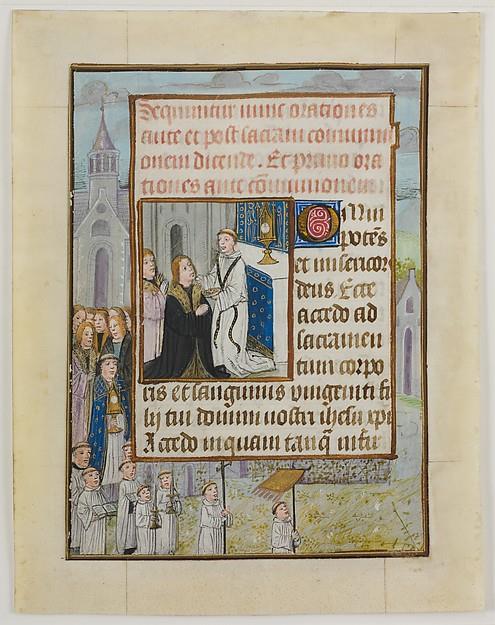 Sequuntur nunc orationes
ante et post sacram commun
onem dicende. Et primo ora
tiones ante cōmunionem
Omni
potēs
et misericor
deus Ecce
accedo ad
sacramen
tum corpo
ris et sanguinis unigeniti fi
lij tui domini nostri ihesu xpi
Accedo inquam tanq̄ infir